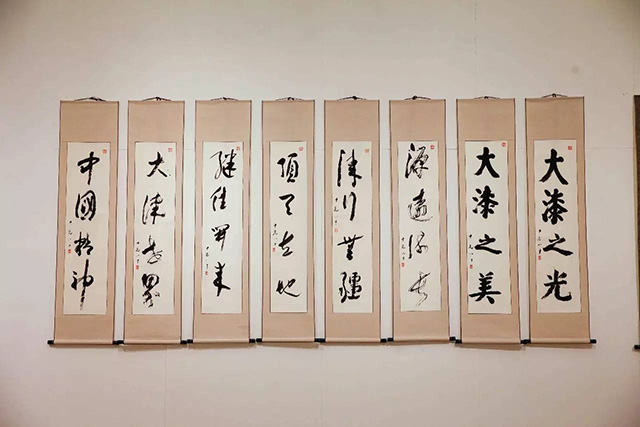 大漆之光
大漆之美
源遠流長
漆行無疆
頂天立地
繼往開來
大漆世界
中國精神